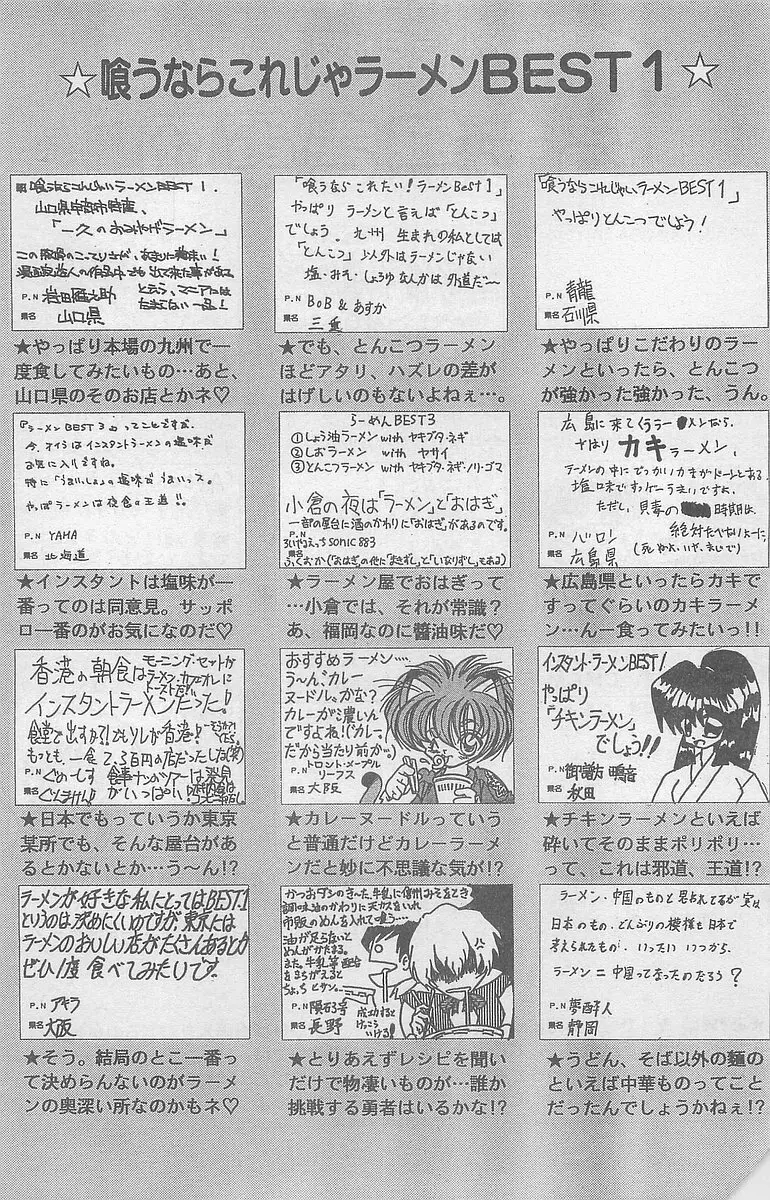 ☆喰うならこれじゃラーメンBEST1☆
喰うならこんじゃいラーメンBEST1.
山口県宇部市特産、
「一久のおみやげラーメン」
この豚骨のこってりさが、あまりに美味い!
とう、マニアには
たまらない一品!
P.N 岩田
県名 山口県
★やっぱり本場の九州で一
度食してみたいもの…あと、
山口県のそのお店とかネ♡
「喰うなら これたい!ラーメンBest1」
やっぱり ラーメンと言えば「とんこつ」
でしょう。九州 生まれの私としては
「とんこつ」以外はラーメンじゃない
塩・みそ・しょうゆなんかは外道だ〜
P.N BoB&あすか
県名 三重
★でも、とんこつラーメン
ほどアタリ、ハズレの差が
はげしいのもないよねぇ…。
「喰うならこれじゃい、ラーメンBEST1」
やっぱりとんこつでしょう!
P.N 青龍
県名 石川県
★やっぱりこだわりのラー
メンといったら、とんこつ
が強かった強かった、うん。
『ラーメンBEST3』ってことですが
今、オイラはインスタントラーメンの塩味が
お気に入りですね。
特に「うまいしょ」の塩味でうまいっス。
やっぱラーメンは夜食の王道!!
P.N YAHA
県名 北海道
★インスタントは塩味が一
番ってのは同意見。サッポ
ロ一番のがお気になのだ♡
らーめんBEST3
①しょう油ラーメン with ヤキブタ・ネギ
②しおラーメン with ヤサイ
③とんこつラーメン with ヤキブタ・ネギ・ノリ・ゴマ
小倉の夜は「ラーメン」と「おはぎ」
一部の屋台に酒のかわりに「おはぎ」があるのです。
P.N sonic883
県名 ふくおか(「おはぎの他に「まきずし」と「いなりずし」もある)
★ラーメン屋でおはぎって
…小倉では、それが常識?
あ、福岡なのに醬油味だ♡
広島に来てくうラーメンなら、
やはり カキラーメン、
ラーメンの中にでっかいカキがドーンとある
塩味ですっげーうまいですよ、
ただし、貝毒の 時期は、
絶対たべないよーに、
P.N バロン
県名 広島県
★広島県といったらカキで
すってぐらいのカキラーメ
ン…ん一食ってみたいっ!!
香港の朝食は
モーニング・セットが
ラーメン・カフェオレに
トーストだ!!
インスタントラーメンだった!
食堂で出すか?!さすが香港!
もっとも、一食で、35円の店だったしね(笑)
P.N ぐめーしす
食事ナンバツアーは発見
がいっぱい!
★日本でもっていうか東京
某所でも、そんな屋台があ
るとかないとか…う〜ん!?
おすすめラーメン…
う〜ん、カレー
ヌードル、かな?
カレーが濃いん
ですよね!(カレー
だから当たり前か。)
P.N トロント・メープル
リーフス
県名 大阪
★カレーヌードルっていう
と普通だけどカレーラーメ
ンだと妙に不思議な気が!?
インスタント・ラーメンBEST1
やっぱり
「チキンラーメン」
でしょう!!
P.N 御諏訪 鳴音
県名 秋田
★チキンラーメンといえば
砕いてそのままポリポリ…
って、これは邪道、王道!?
ラーメンが好きな私にとってはBEST.1
というのは決めにくいのですが、東京には
ラーメンのおいしい店がたくさんあるとか
ぜひ1度 食べてみたいです。
P.N アキラ
県名 大阪
★そう。結局のとこ一番っ
て決めらんないのがラーメ
ンの奥深い所なのかもネ♡
かつおダシのきいた牛乳に信州みそをとき
調味油のかわりに天カスをいれ
市販のめんを入れて喰う…
油が足らないと
めんがかたまる。
また、牛乳等 配合
をまちがえると
ちょっち ヒサン…
P.N 隕石3号
県名 長野
成功すると
けっこう
いける!
★とりあえずレシピを聞い
だけで物凄いものが…誰か
挑戦する勇者はいるかな!?
ラーメン・中国のものと思われてるが実は
日本のもの、どんぶりの模様も日本で
考えられたもの。いったい いつから
ラーメン=中国って言ったのだろう?
P.N 夢酔人
県名 静岡
★うどん、そば以外の麺の
といえば中華ものってこと
だったんでしょうかねぇ!?